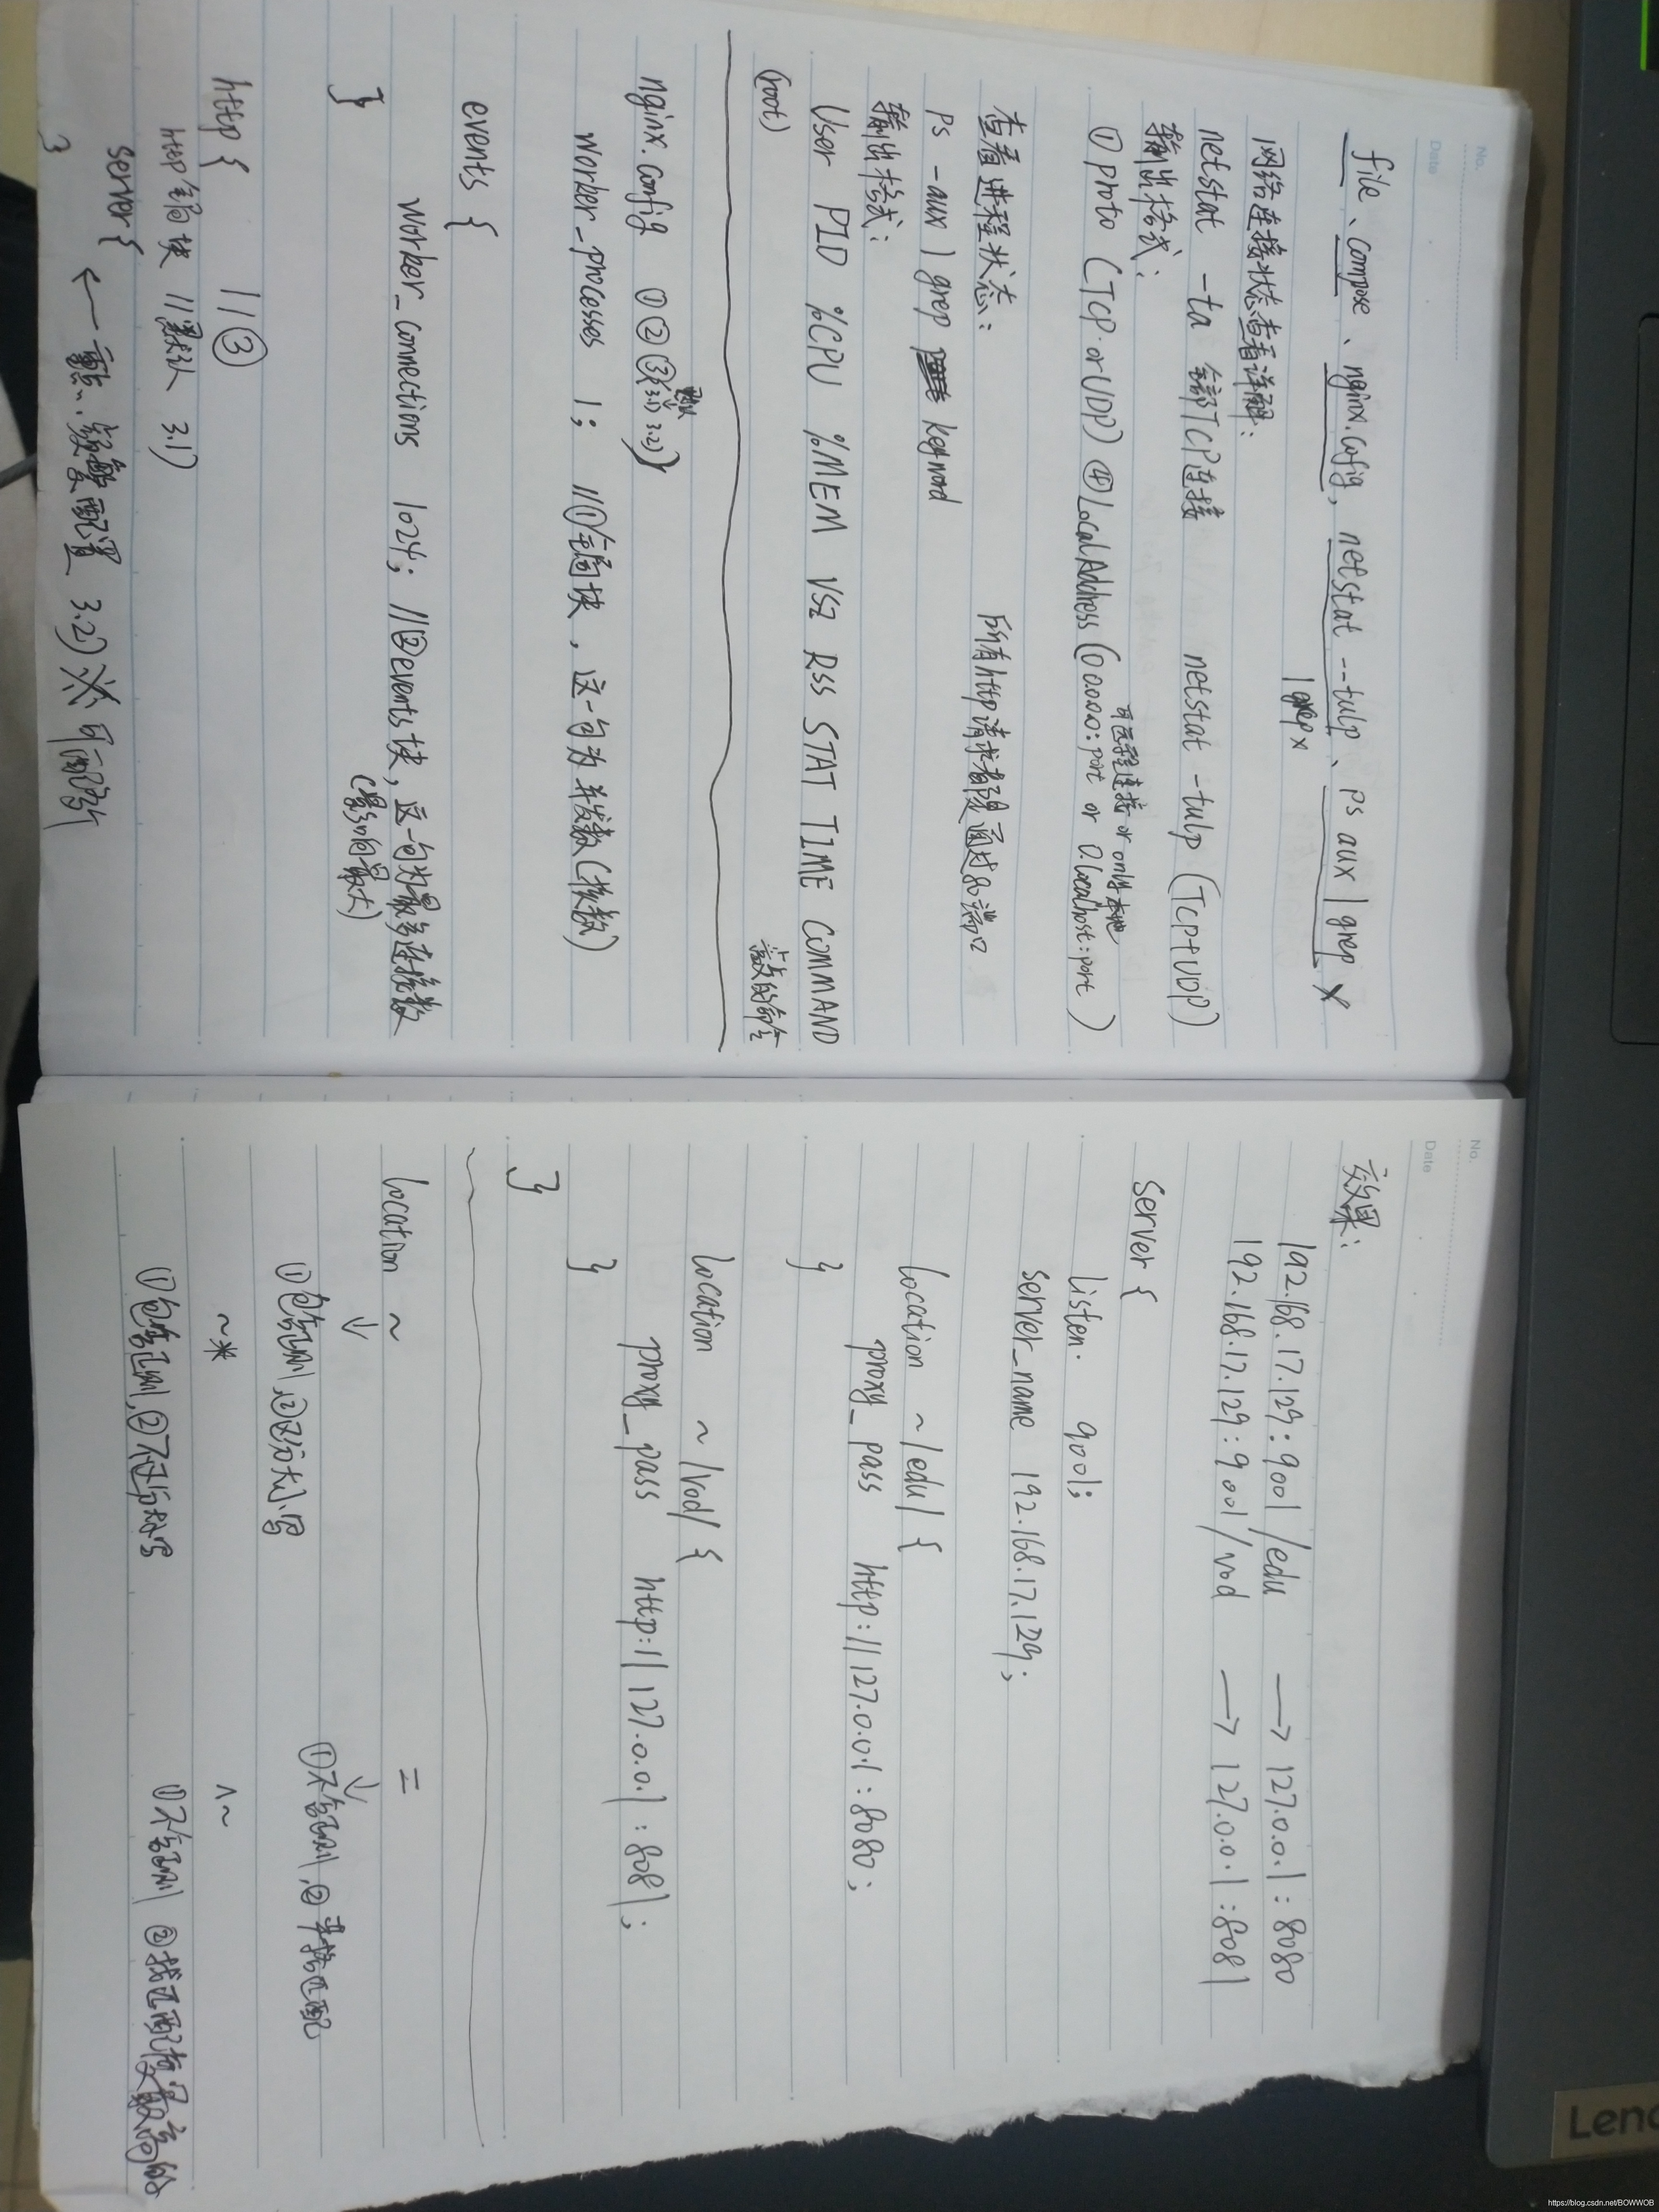 No.
Date
file、compose、nginx.cofig, netstat --tulp、ps aux | grep x
| grep x
网络连接状态查看详解:
netstat -ta 全部TCP连接 netstat -tulp (TCP+UDP)
输出格式:
可远程连接 or only本地
① proto (TCP or UDP) ④Local Address (0.0.0.0:port or 0.localhost:port)
查看进程状态: 所有http请求都是通过80端口
ps -aux | grep keyword
输出格式:
User PID %CPU %MEM VSZ RSS STAT TIME COMMAND
(root)
nginx.config ① ② ③(3.1) 3.2)
worker_processes 1; //①全局块,这一句为并发数(核数)
events {
worker_connections 1024; //②events块,这一句为最多连接数
}
http { //③
http全局块 //默认 3.1)
server{ ← 重点, 频繁配置 3.2) ※
}
No.
Date
效果:
192.168.17.129:9001/edu → 127.0.0.1:8080
192.168.17.129:9001/vod → 127.0.0.1:8081
server {
listen 9001;
server_name 192.168.17.129;
location ~ /edu/ {
proxy_pass http://127.0.0.1:8080;
}
location ~ /vod/ {
proxy_pass http://127.0.0.1:8081;
}
}
location ~ =
↓ ↓
①包含正则,②区分大小写 ①不含正则,②严格匹配
~* ^~
①包含正则,②不区分大小写 ①不含正则 ②找匹配度最高的
Leno
https://blog.csdn.net/BOWWOB